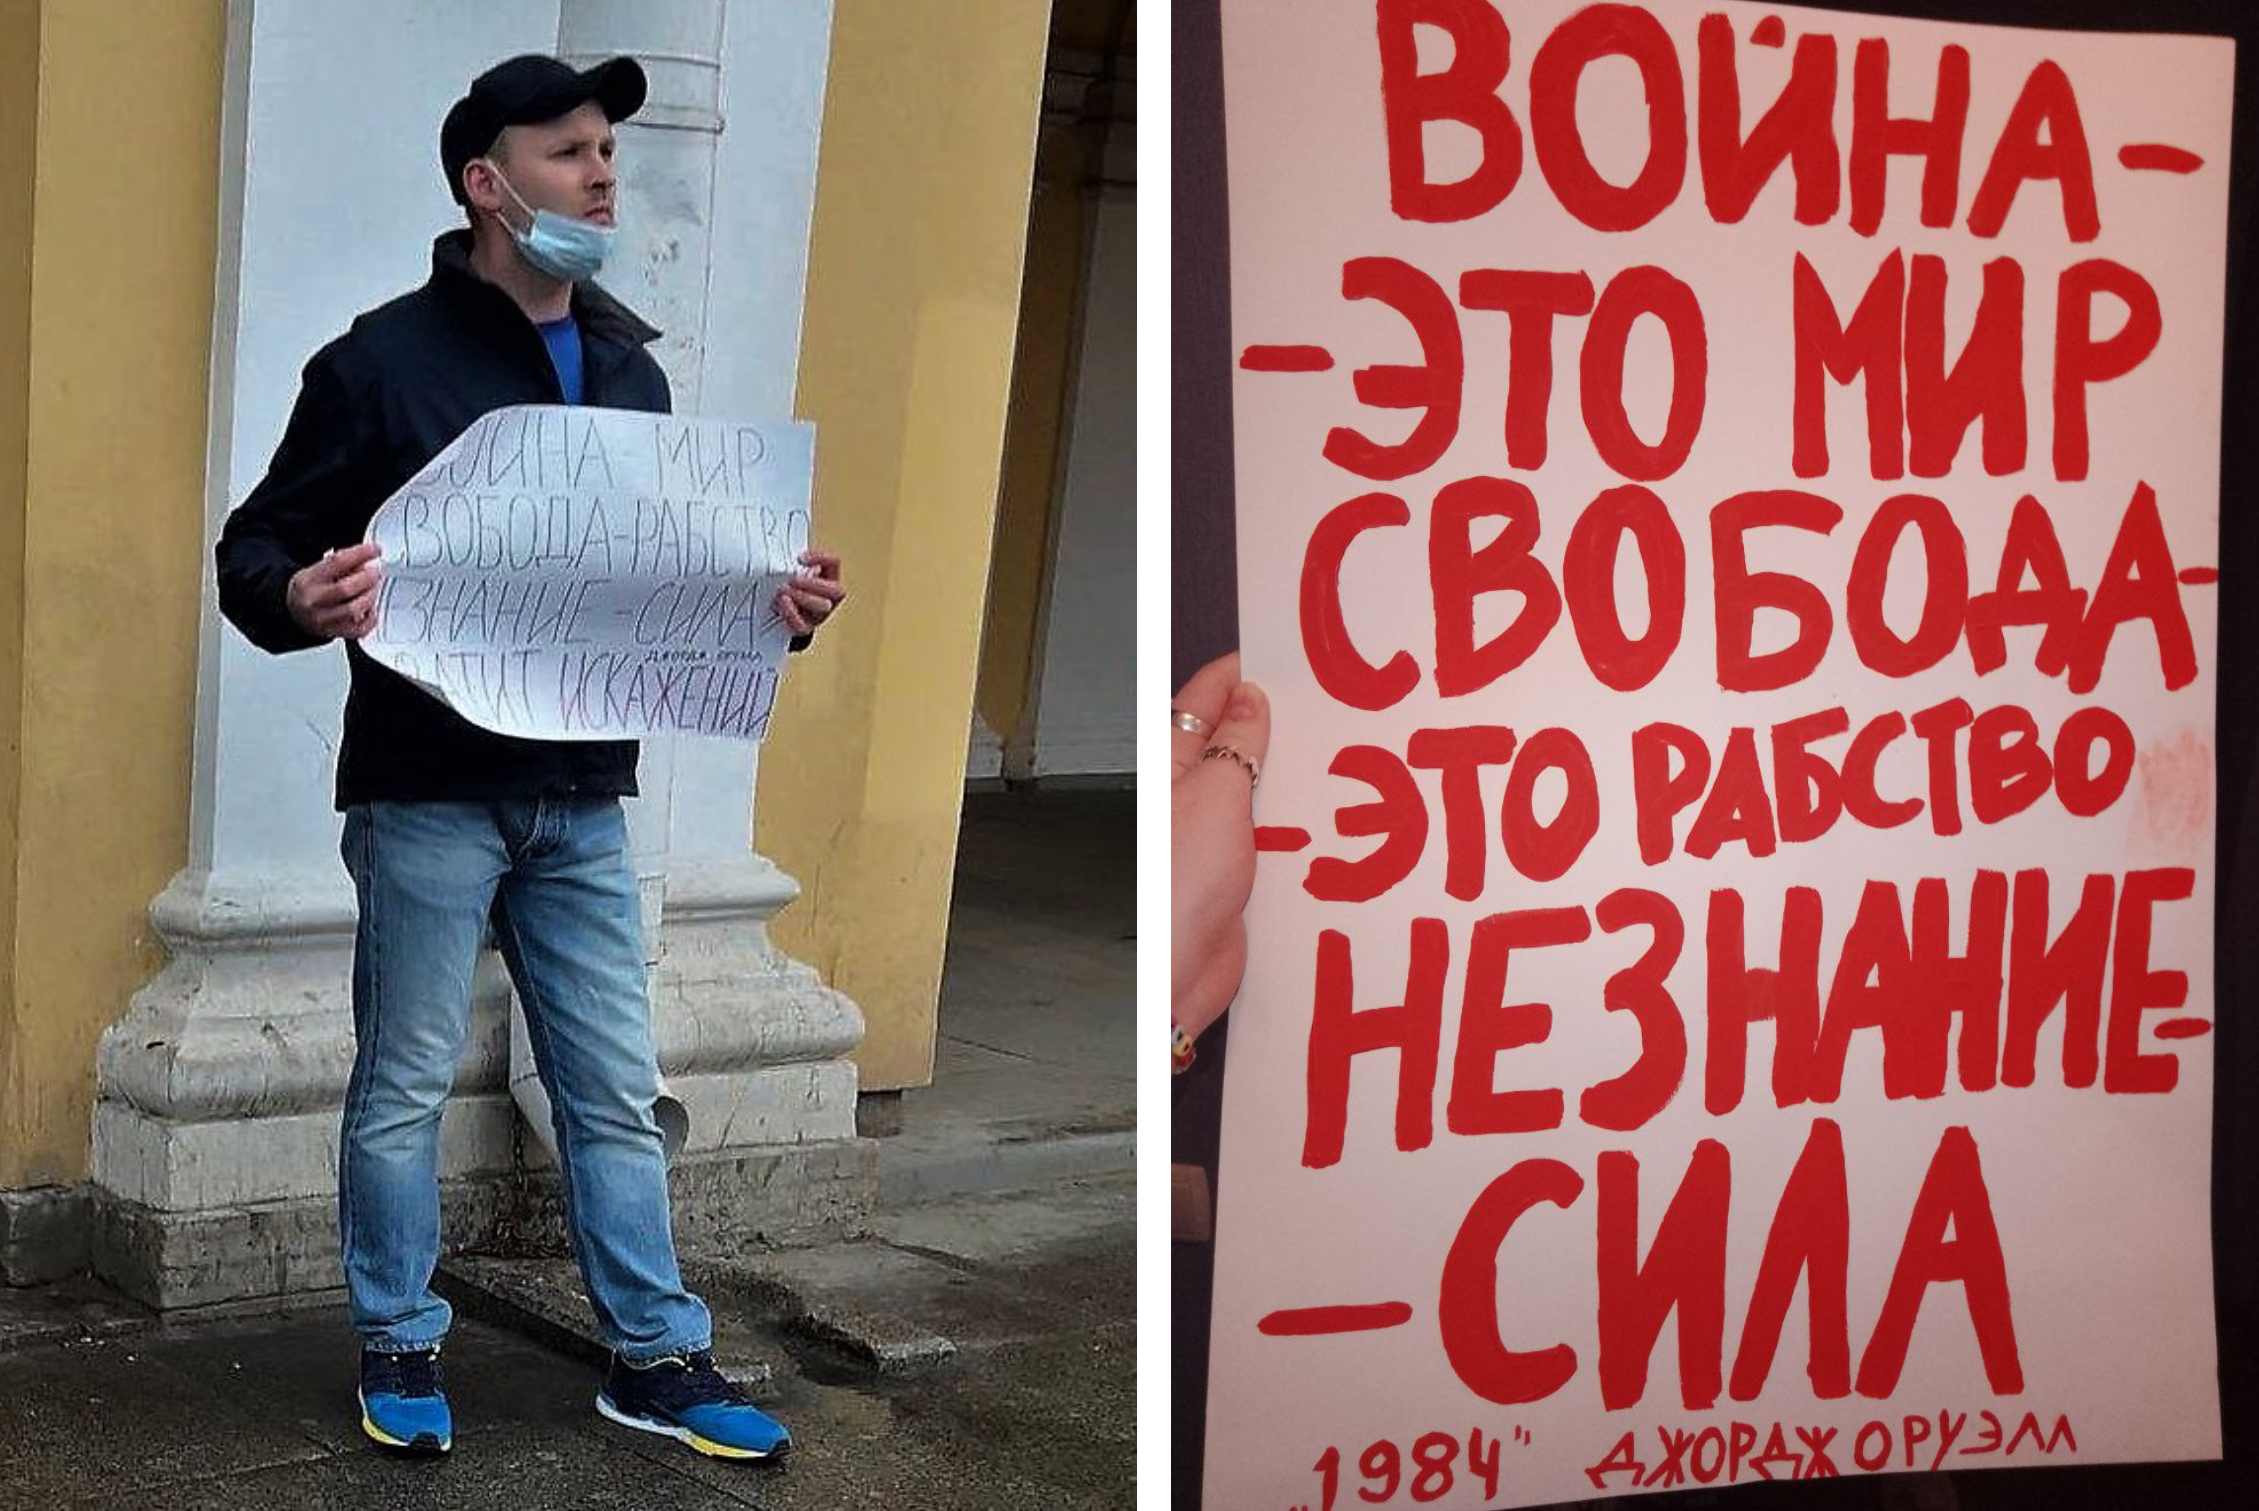 ВОЙНА - МИР
СВОБОДА-РАБСТВО
НЕЗНАНИЕ - СИЛА»
ДЖОРДЖ ОРУЭЛЛ
ИСКАЖЕНИЙ
ВОЙНА -
- ЭТО МИР
СВОБОДА -
- ЭТО РАБСТВО
НЕЗНАНИЕ -
- СИЛА
„1984" ДЖОРДЖ ОРУЭЛЛ